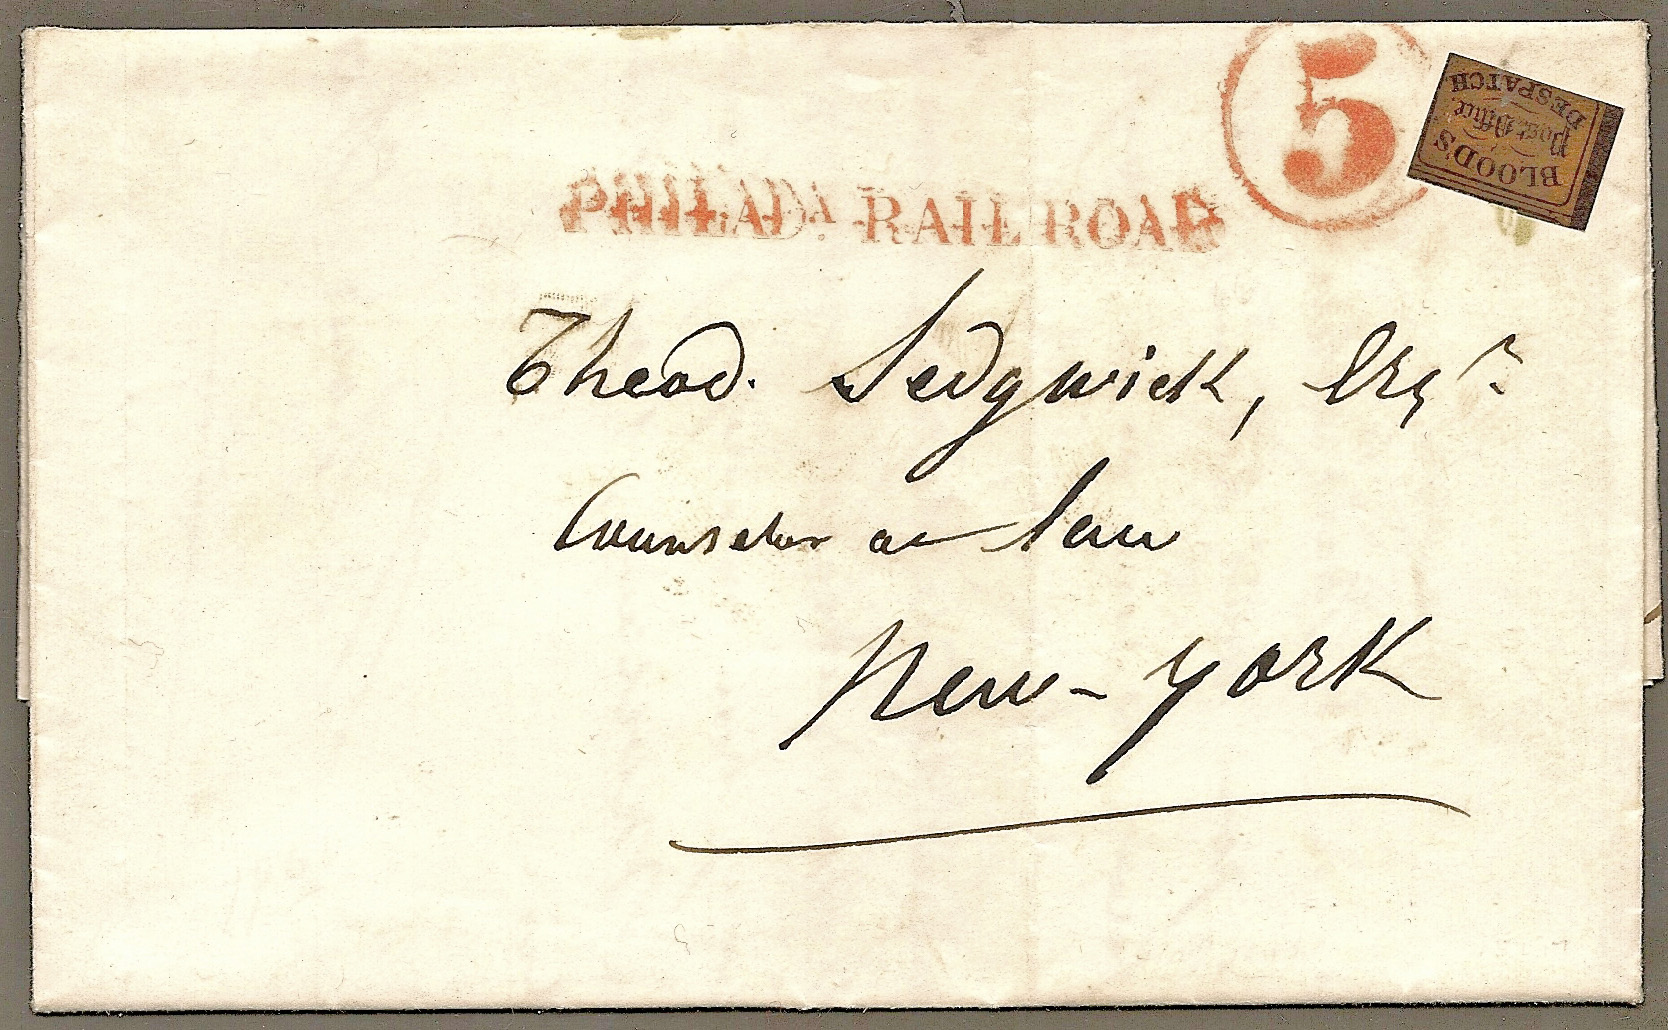 5
BLOOD'S
Post Office
DESPATCH
PHILADA. RAILROAD
Theod. Sedgwick, Esqr.
Counselor at law
New-York